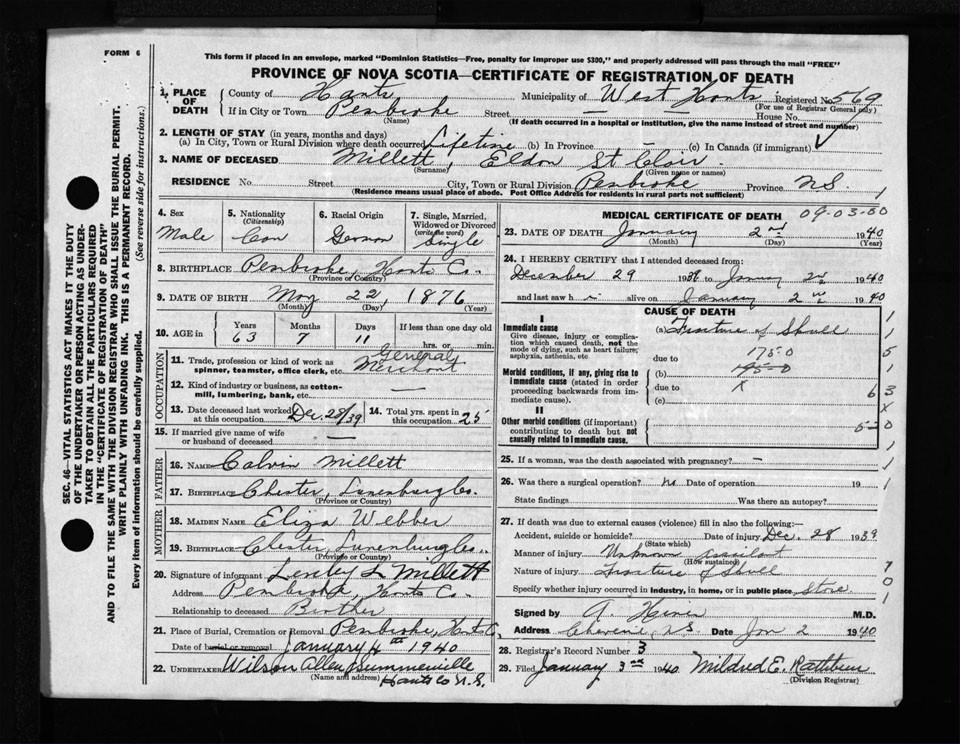 FORM 6
This form if placed in an envelope, marked "Dominion Statistics—Free, penalty for improper use $300," and properly addressed will pass through the mail "FREE"
PROVINCE OF NOVA SCOTIA—CERTIFICATE OF REGISTRATION OF DEATH
1. PLACE OF DEATH
County of Hants Municipality of West Hants Registered No. 569
(For use of Registrar General only)
If in City or Town Pembroke Street House No.
(Name) (If death occurred in a hospital or institution, give the name instead of street and number)
2. LENGTH OF STAY (in years, months and days)
(a) In City, Town or Rural Division where death occurred Lifetime (b) In Province — (c) In Canada (if immigrant)
3. NAME OF DECEASED Millett, Eldon St Clair
(Surname) (Given name or names)
RESIDENCE No. Street City, Town or Rural Division Pembroke Province N.S.
(Residence means usual place of abode. Post Office Address for residents in rural parts not sufficient)
4. Sex
Male
5. Nationality (Citizenship)
Can
6. Racial Origin
German
7. Single, Married, Widowed or Divorced (write the word)
Single
8. BIRTHPLACE Pembroke, Hants Co.
(Province or Country)
9. DATE OF BIRTH May 22, 1876
(Month) (Day) (Year)
10. AGE in Years Months Days If less than one day old
63 7 11 hrs. or min.
OCCUPATION
11. Trade, profession or kind of work as spinner, teamster, office clerk, etc. General Merchant
12. Kind of industry or business, as cotton-mill, lumbering, bank, etc. —
13. Date deceased last worked at this occupation Dec 28/39
14. Total yrs. spent in this occupation 25
15. If married give name of wife or husband of deceased —
FATHER
16. NAME Calvin Millett
17. BIRTHPLACE Chester, Lunenburg Co.
(Province or Country)
MOTHER
18. MAIDEN NAME Eliza Webber
19. BIRTHPLACE Chester, Lunenburg Co.
(Province or Country)
20. Signature of informant Lesley L Millett
Address Pembroke, Hants Co.
Relationship to deceased Brother
21. Place of Burial, Cremation or Removal Pembroke, Hants Co
Date of burial or removal January 4th 1940
22. UNDERTAKER Wilson Allen, Summerville
(Name and address) Hants Co N.S.
MEDICAL CERTIFICATE OF DEATH 09-03-00
23. DATE OF DEATH January 2nd 1940
(Month) (Day) (Year)
24. I HEREBY CERTIFY that I attended deceased from:
December 29 1939 to January 2nd 1940
and last saw h alive on January 2nd 1940
CAUSE OF DEATH
I
Immediate cause
Give disease, injury or complication which caused death, not the mode of dying, such as heart failure, asphyxia, asthenia, etc
(a) Fracture of Skull
due to 175-0
Morbid conditions, if any, giving rise to immediate cause (stated in order proceeding backwards from immediate cause).
(b) 195-0
due to
(c)
II
Other morbid conditions (if important) contributing to death but not causally related to immediate cause.
25. If a woman, was the death associated with pregnancy? —
26. Was there a surgical operation? No Date of operation 19
State findings Was there an autopsy?
27. If death was due to external causes (violence) fill in also the following:—
Accident, suicide or homicide? Date of injury Dec. 28 1939
(State which)
Manner of injury Unknown assailant
(How sustained)
Nature of injury Fracture of Skull
Specify whether injury occurred in industry, in home, or in public place Store
Signed by M.D.
Address Cheverie, NS Date Jan 2 1940
28. Registrar's Record Number 3
29. Filed January 3rd 1940 Mildred E. Rathbun
(Division Registrar)
SEC. 46—VITAL STATISTICS ACT MAKES IT THE DUTY OF THE UNDERTAKER OR PERSON ACTING AS UNDERTAKER TO OBTAIN ALL THE PARTICULARS REQUIRED IN THE "CERTIFICATE OF REGISTRATION OF DEATH"
AND TO FILE THE SAME WITH THE DIVISION REGISTRAR WHO SHALL ISSUE THE BURIAL PERMIT.
WRITE PLAINLY WITH UNFADING INK. THIS IS A PERMANENT RECORD.
Every item of information should be carefully supplied. (See reverse side for instructions.)